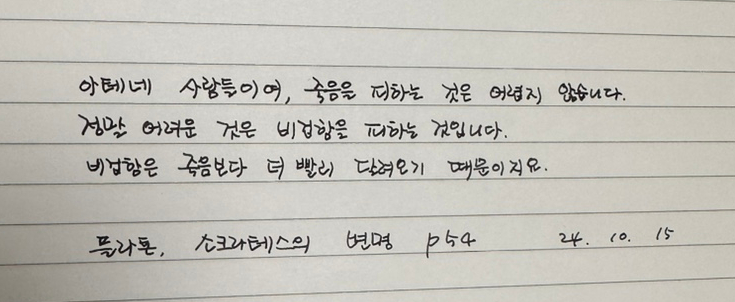 아테네 사람들이여, 죽음을 피하는 것은 어렵지 않습니다.
정말 어려운 것은 비겁함을 피하는 것입니다.
비겁함은 죽음보다 더 빨리 달려오기 때문이지요.
플라톤, 소크라테스의 변명 p54 24. 10. 15